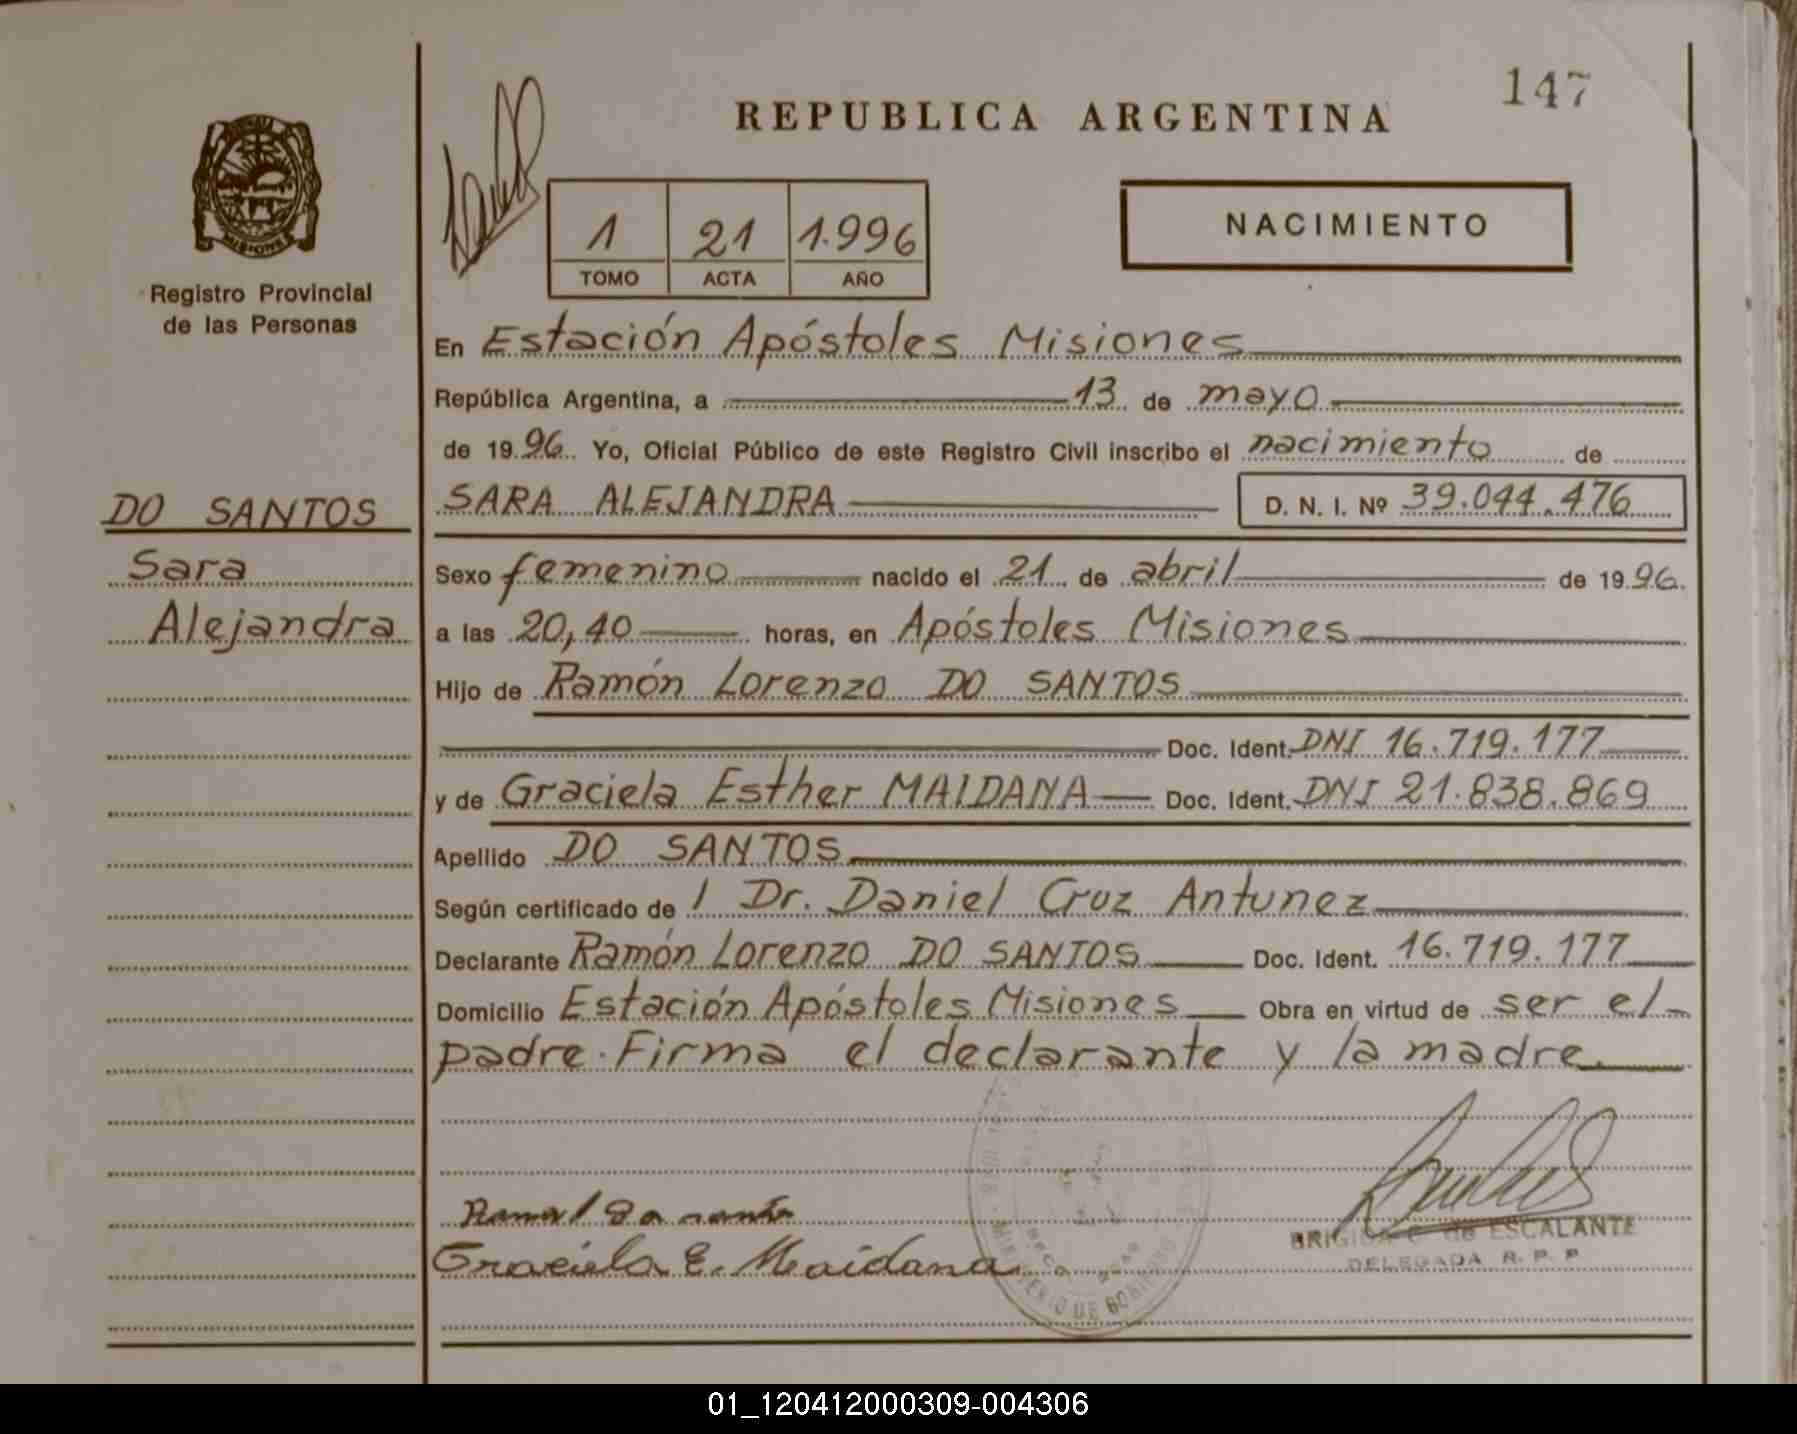 147
REPUBLICA ARGENTINA
MISIONES
Registro Provincial
de las Personas
1 21 1.996
TOMO ACTA AÑO
NACIMIENTO
En Estación Apóstoles Misiones
República Argentina, a 13 de mayo
de 1996. Yo, Oficial Público de este Registro Civil inscribo el nacimiento de
SARA ALEJANDRA D. N. I. Nº 39.044.476
DO SANTOS
Sara
Alejandra
Sexo femenino nacido el 21 de abril de 1996.
a las 20,40 horas, en Apóstoles Misiones
Hijo de Ramón Lorenzo DO SANTOS
Doc. Ident. DNI 16.719.177
y de Graciela Esther MAIDANA Doc. Ident. DNI 21.838.869
Apellido DO SANTOS
Según certificado de / Dr. Daniel Cruz Antunez
Declarante Ramón Lorenzo DO SANTOS Doc. Ident. 16.719.177
Domicilio Estación Apóstoles Misiones Obra en virtud de ser el
padre. Firma el declarante y la madre.
Graciela E. Maidana
BRIGIDA de ESCALANTE
DELEGADA R. P. P.
MINISTERIO DE GOBIERNO
01_120412000309-004306